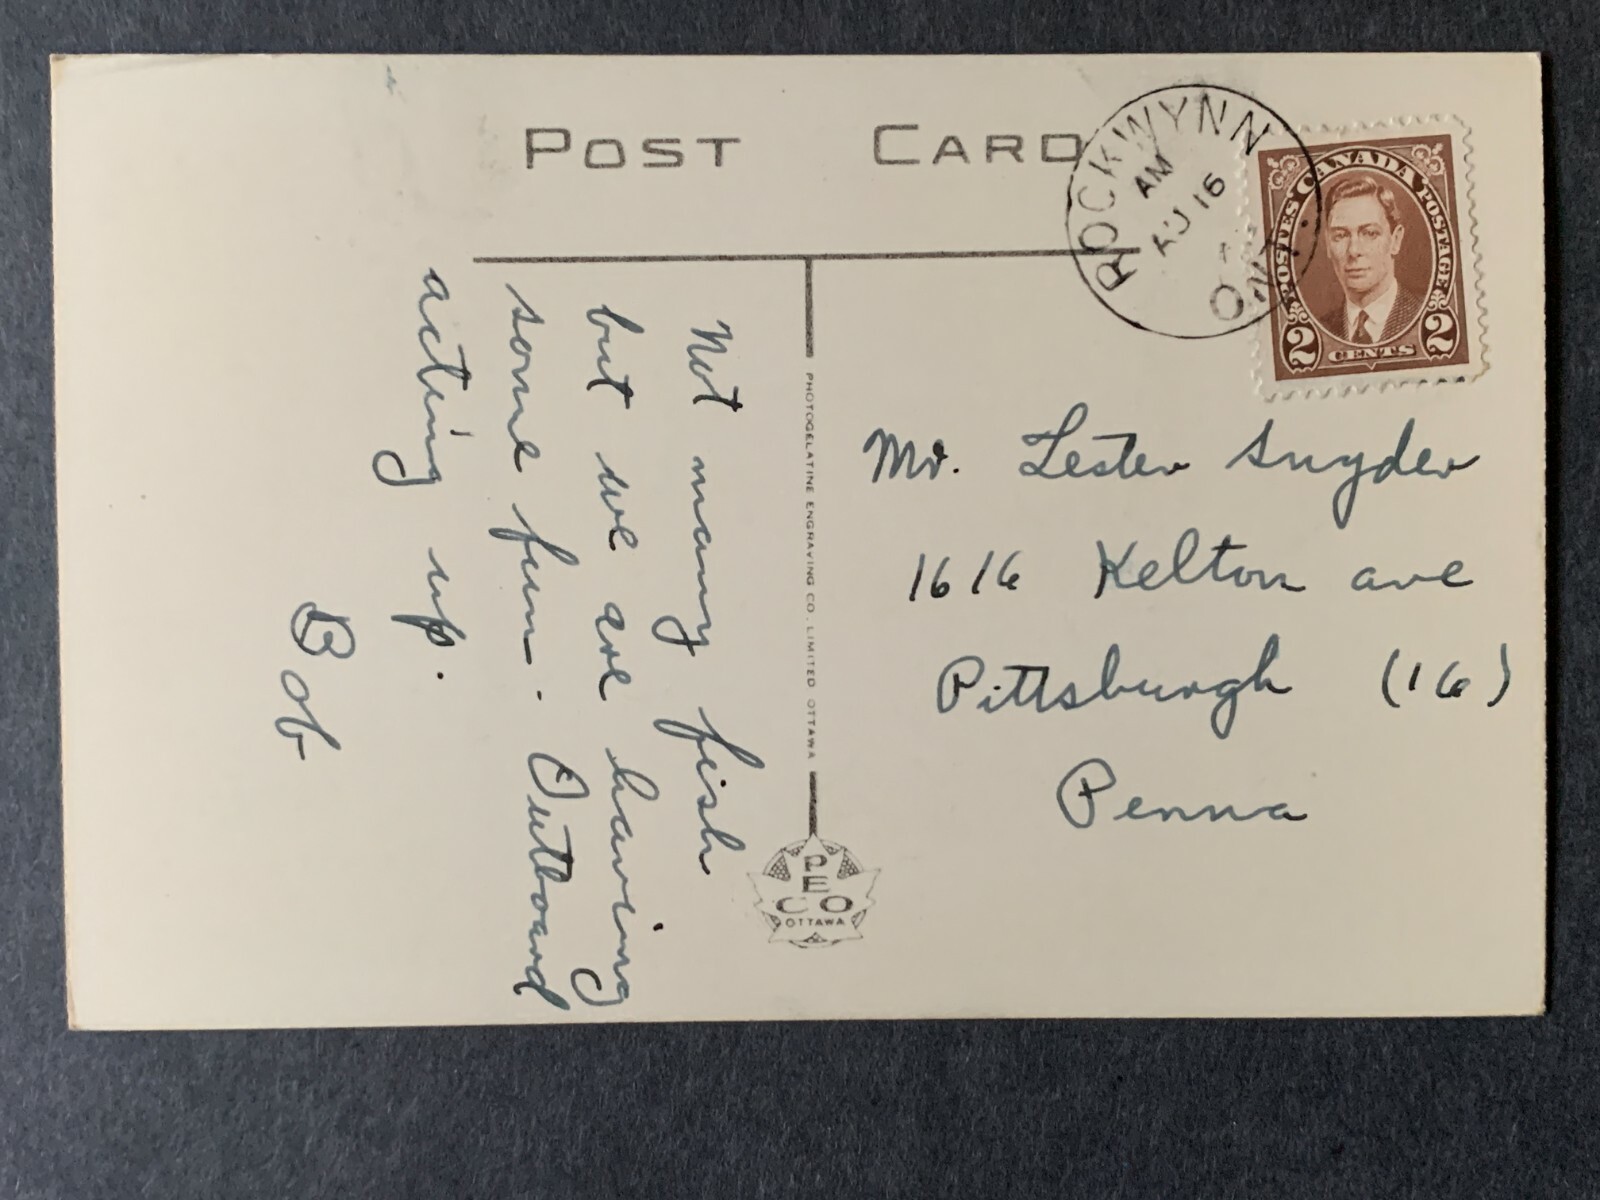 POST CARD
ROCKWYNN
AM
AU 16
ONT.
CANADA
POSTES POSTAGE
2 CENTS 2
Not many fish
but we are having
some fun. Outboard
acting up.
Bob
PHOTOGELATINE ENGRAVING CO. LIMITED OTTAWA
PECO
OTTAWA
Mr. Lester Snyder
1616 Kelton ave
Pittsburgh (16)
Penna